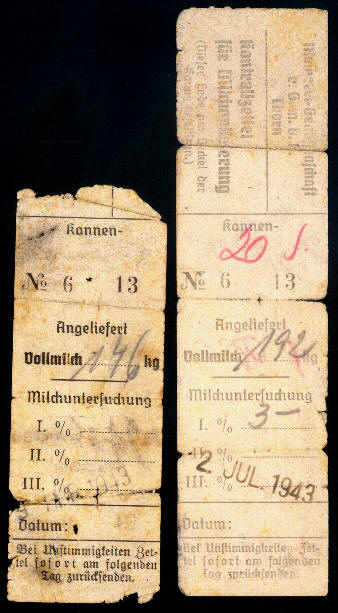 Kannen-
№ 6 13
Angeliefert
Vollmilch 146 kg
Milchuntersuchung
I. %
II. %
III. %
Datum:
Bei Unstimmigkeiten Zet-
tel sofort am folgenden
Tag zurücksenden.
Kontrollzettel
für Milchanlieferung
(Dieser Ende am Deckel der
Kannen-
20
№ 6 13
Angeliefert
Vollmilch 192 kg
Milchuntersuchung
I. % 3-
II. %
III. %
2 JUL. 1943
Datum:
Bei Unstimmigkeiten Zet-
tel sofort am folgenden
Tag zurücksenden.